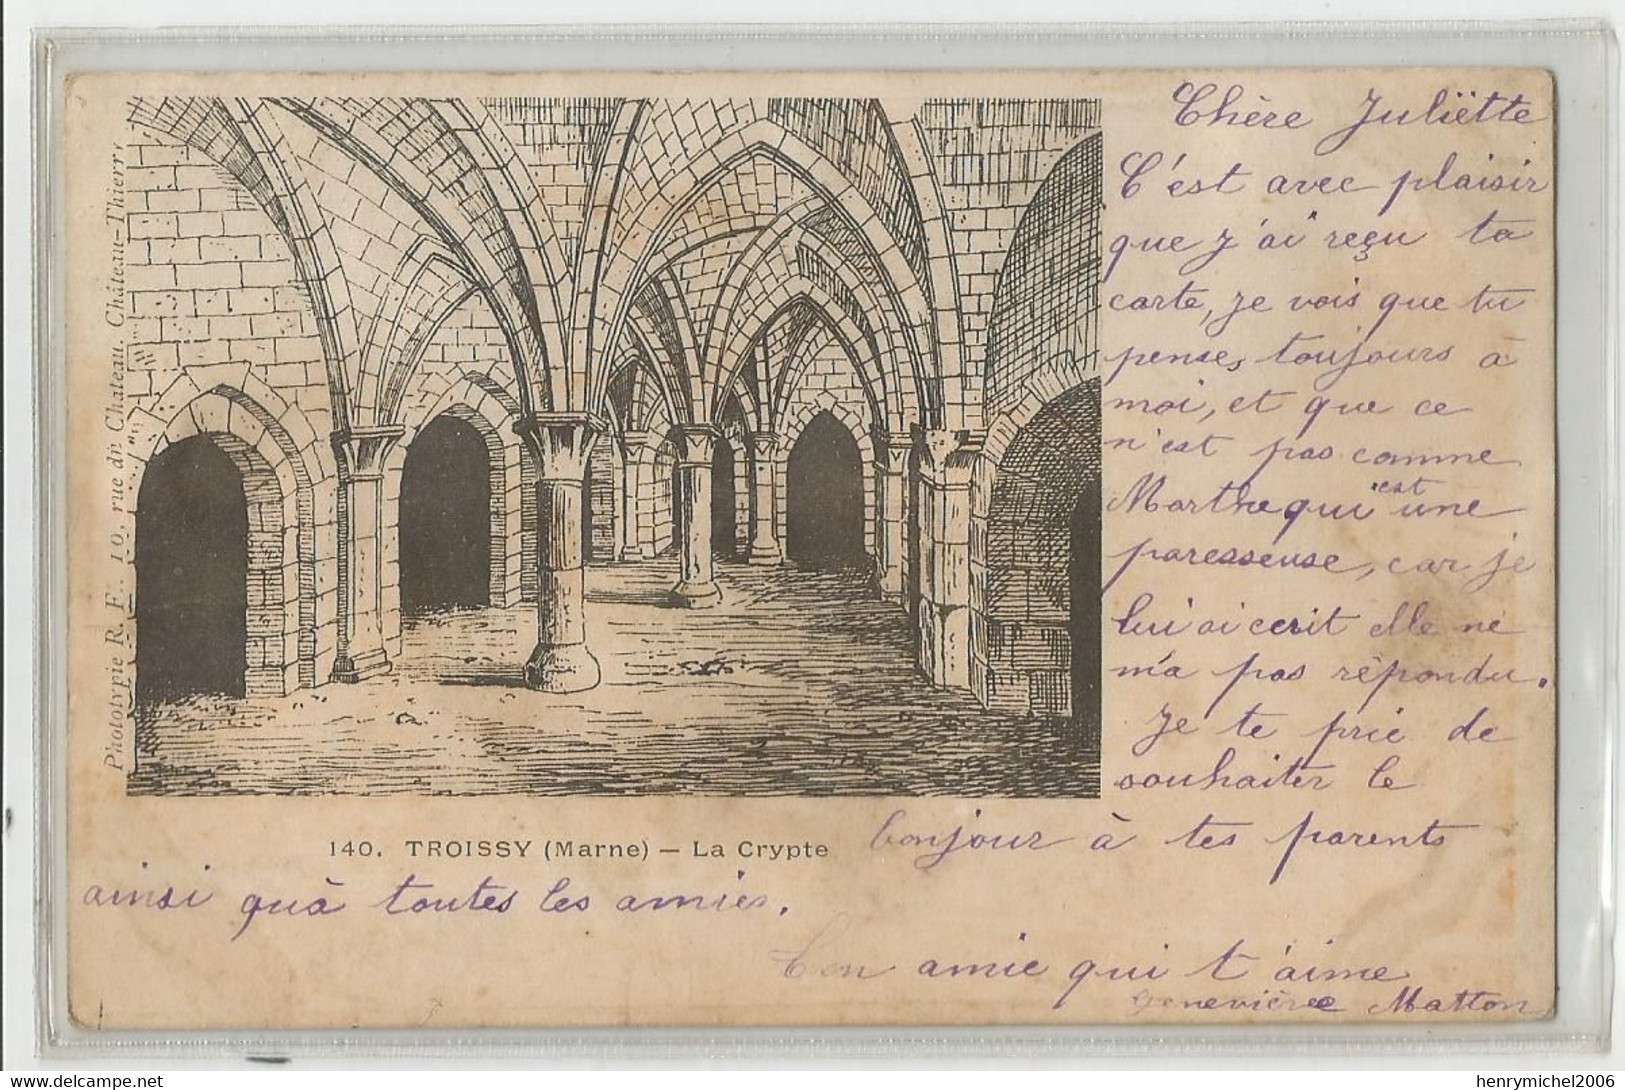 Phototypie R. F. 10, rue du Chateau. Château-Thierry
140. TROISSY (Marne) — La Crypte
Chère Juliëtte
C'est avec plaisir
que j'ai reçu ta
carte, je vois que tu
penses toujours à
moi, et que ce
n'est pas comme
Marthe qui est une
paresseuse, car je
lui ai ecrit elle ne
m'a pas répondu.
Je te prie de
souhaiter le
bonjour à tes parents
ainsi quà toutes les amies.
Ton amie qui t'aime
Geneviève Matton
henrymichel2006